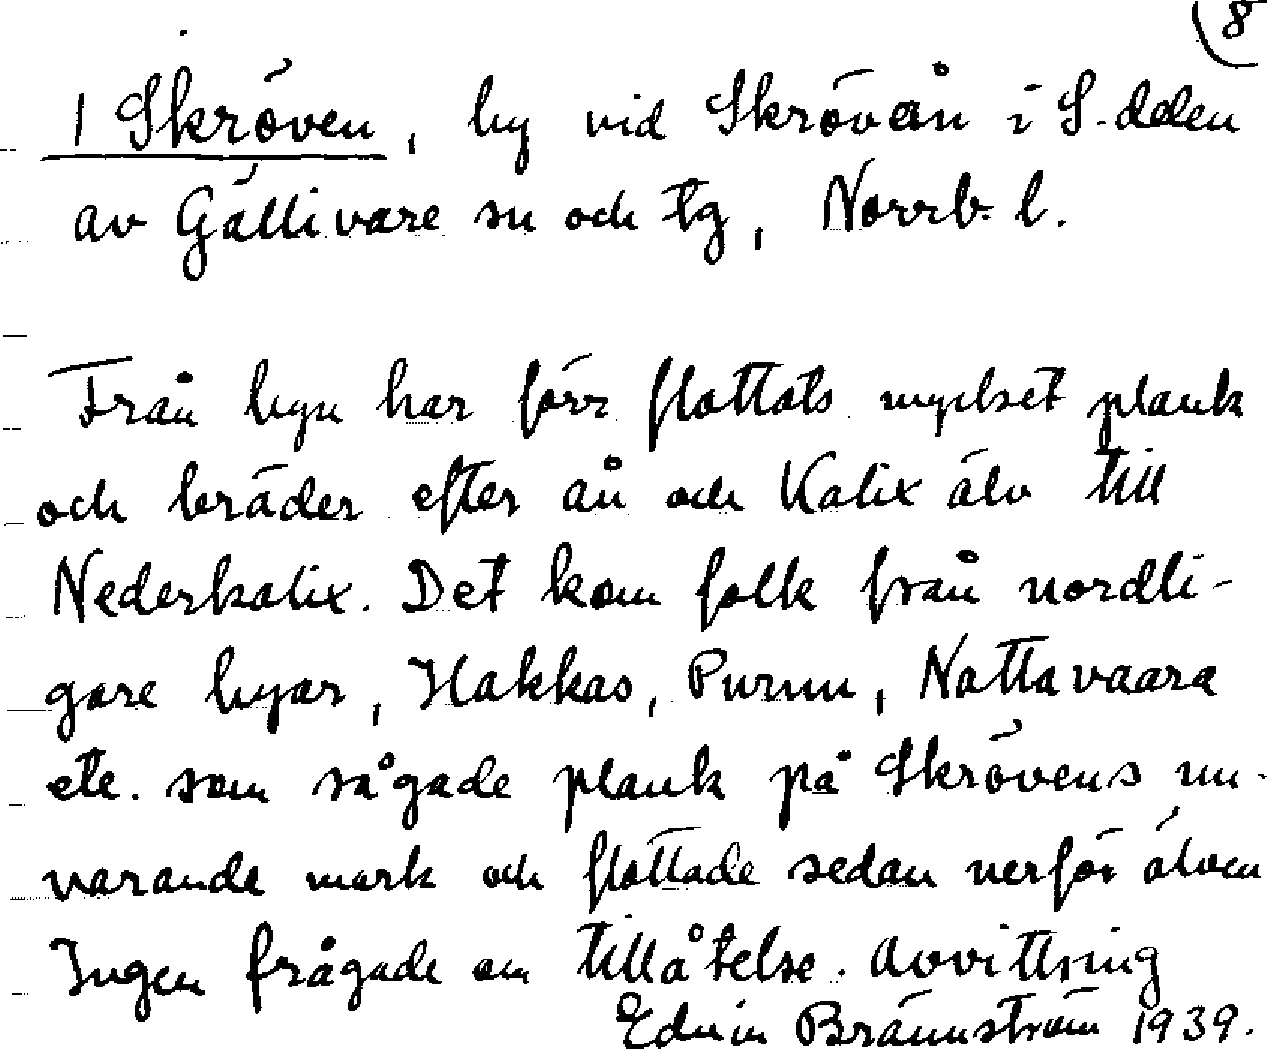 8
I Skröven, by vid Skrövån i S. delen
av Gällivare sn och tg, Norrb. l.
Från byn har förr flottats mycket plank
och bräder efter ån och Kalix älv till
Nederkalix. Det kom folk från nordli-
gare byar, Hakkas, Purnu, Nattavaara
etc. som sågade plank på Skrövens nu-
varande mark och flottade sedan nerför älven
Ingen frågade om tillåtelse. Avvittring
Edvin Brännström 1939.